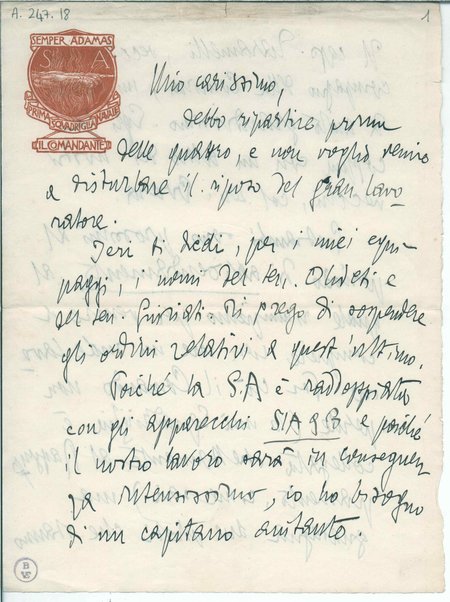 A. 247. 18
1
SEMPER ADAMAS
S A
PRIMA SQUADRIGLIA NAVALE
IL COMANDANTE
Mio carissimo,
debbo ripartire prima
delle quattro, e non voglio venire
a disturbare il riposo del gran lavo-
ratore.
Ieri ti diedi, per i miei equi-
paggi, i nomi del ten. Oliveti e
del ten. Giuriati. Ti prego di sospendere
gli ordini relativi a quest'ultimo.
Poiché la S.A è raddoppiata
con gli apparecchi SIA 9B e poiché
il nostro lavoro sarà in conseguen-
za intensissimo, io ho bisogno
di un capitano aiutante.
B